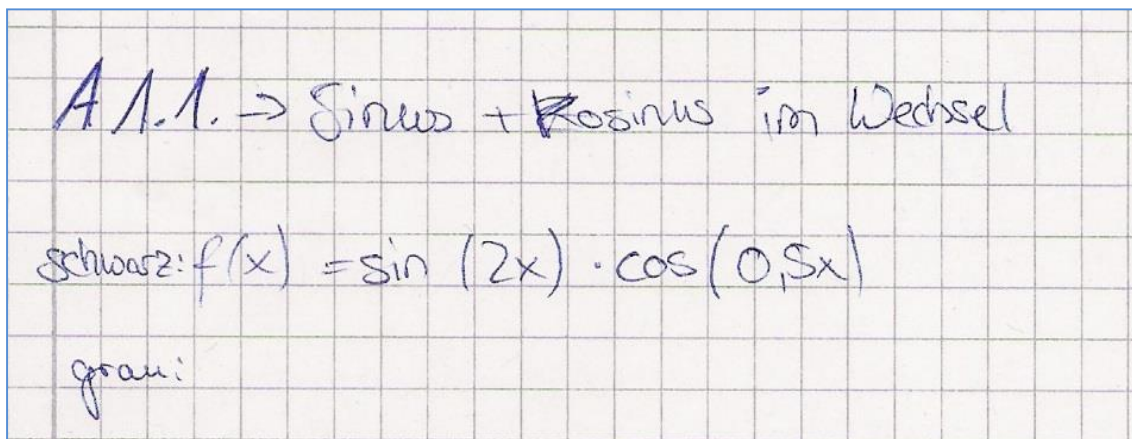 A 1.1. → Sinus + Kosinus im Wechsel
schwarz: f(x) = sin (2x) · cos(0,5x)
grau: